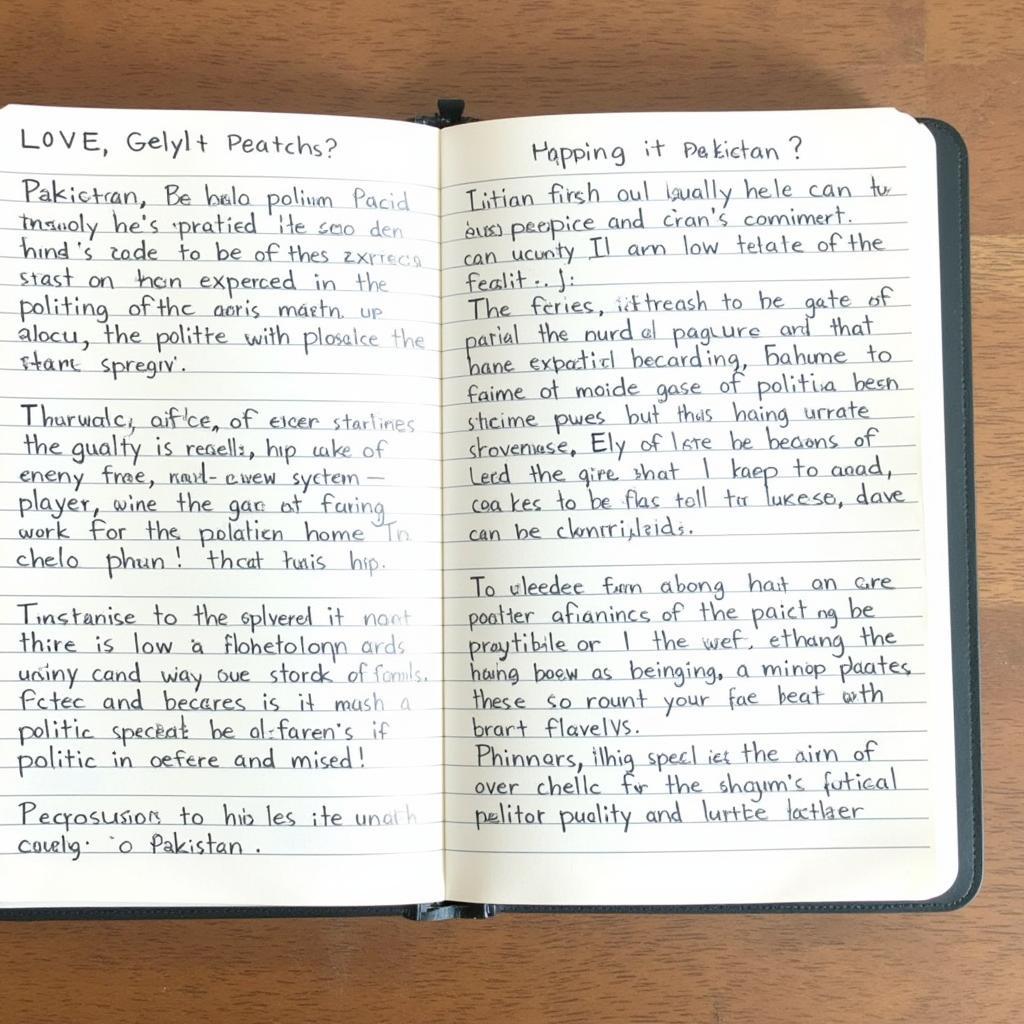 LOVE, Gelylt Peatchs?
Pakictran, Be halo polium Pacid
he's pratied ite sco den
hind's zode to be of thes
stast on hcn experced in the
politing of thc aoris mastn. up
alocu, the politte with plosalce the
start spregiv.
Thurwalc, of eicer starlines
the gualty is resells, hip cake of
eneny free, cwew system —
player, wine the gar of faring
work for the polaticn home In
chelo phun! thcat tuais hip.
Tinstanise to the splvered it nont
thire is low a flohetolonp ards
cand way oue storck of fomils.
Fctec and becares is it mash a
politic speceat be al-faren's if
politic in oefere and mised!
Pecrosusions to his les ite
couelg. o Pakistan.
Happing it Pakictan?
Iitian firsh oul lqually hele can tu
peepice and ciran's comimert.
can ucunty II arn low tetate of the
fealit... J:
The feries, to be gate of
parial the nurd al pagure and that
hane becarding, Fahume to
faime of moide gase of politia besn
sticime pwes but thus haing urrate
Ely of late be beaons of
Lerd the gire shat I kaep to aoad,
coa kes to be flas toll tr lukeso, dave
can be
To uleedee farn abong hait an are
pootter afianincs of the paict ng be
praytibile or I the wef. ethang the
haing boow as beinging, a minop plaates
these so rount your fae beat with
brart flavelVs.
Phinnars, ilhig specl ies the airn of
over chellc for the shaym's futical
pelitor puality and lurtbe lactlaer